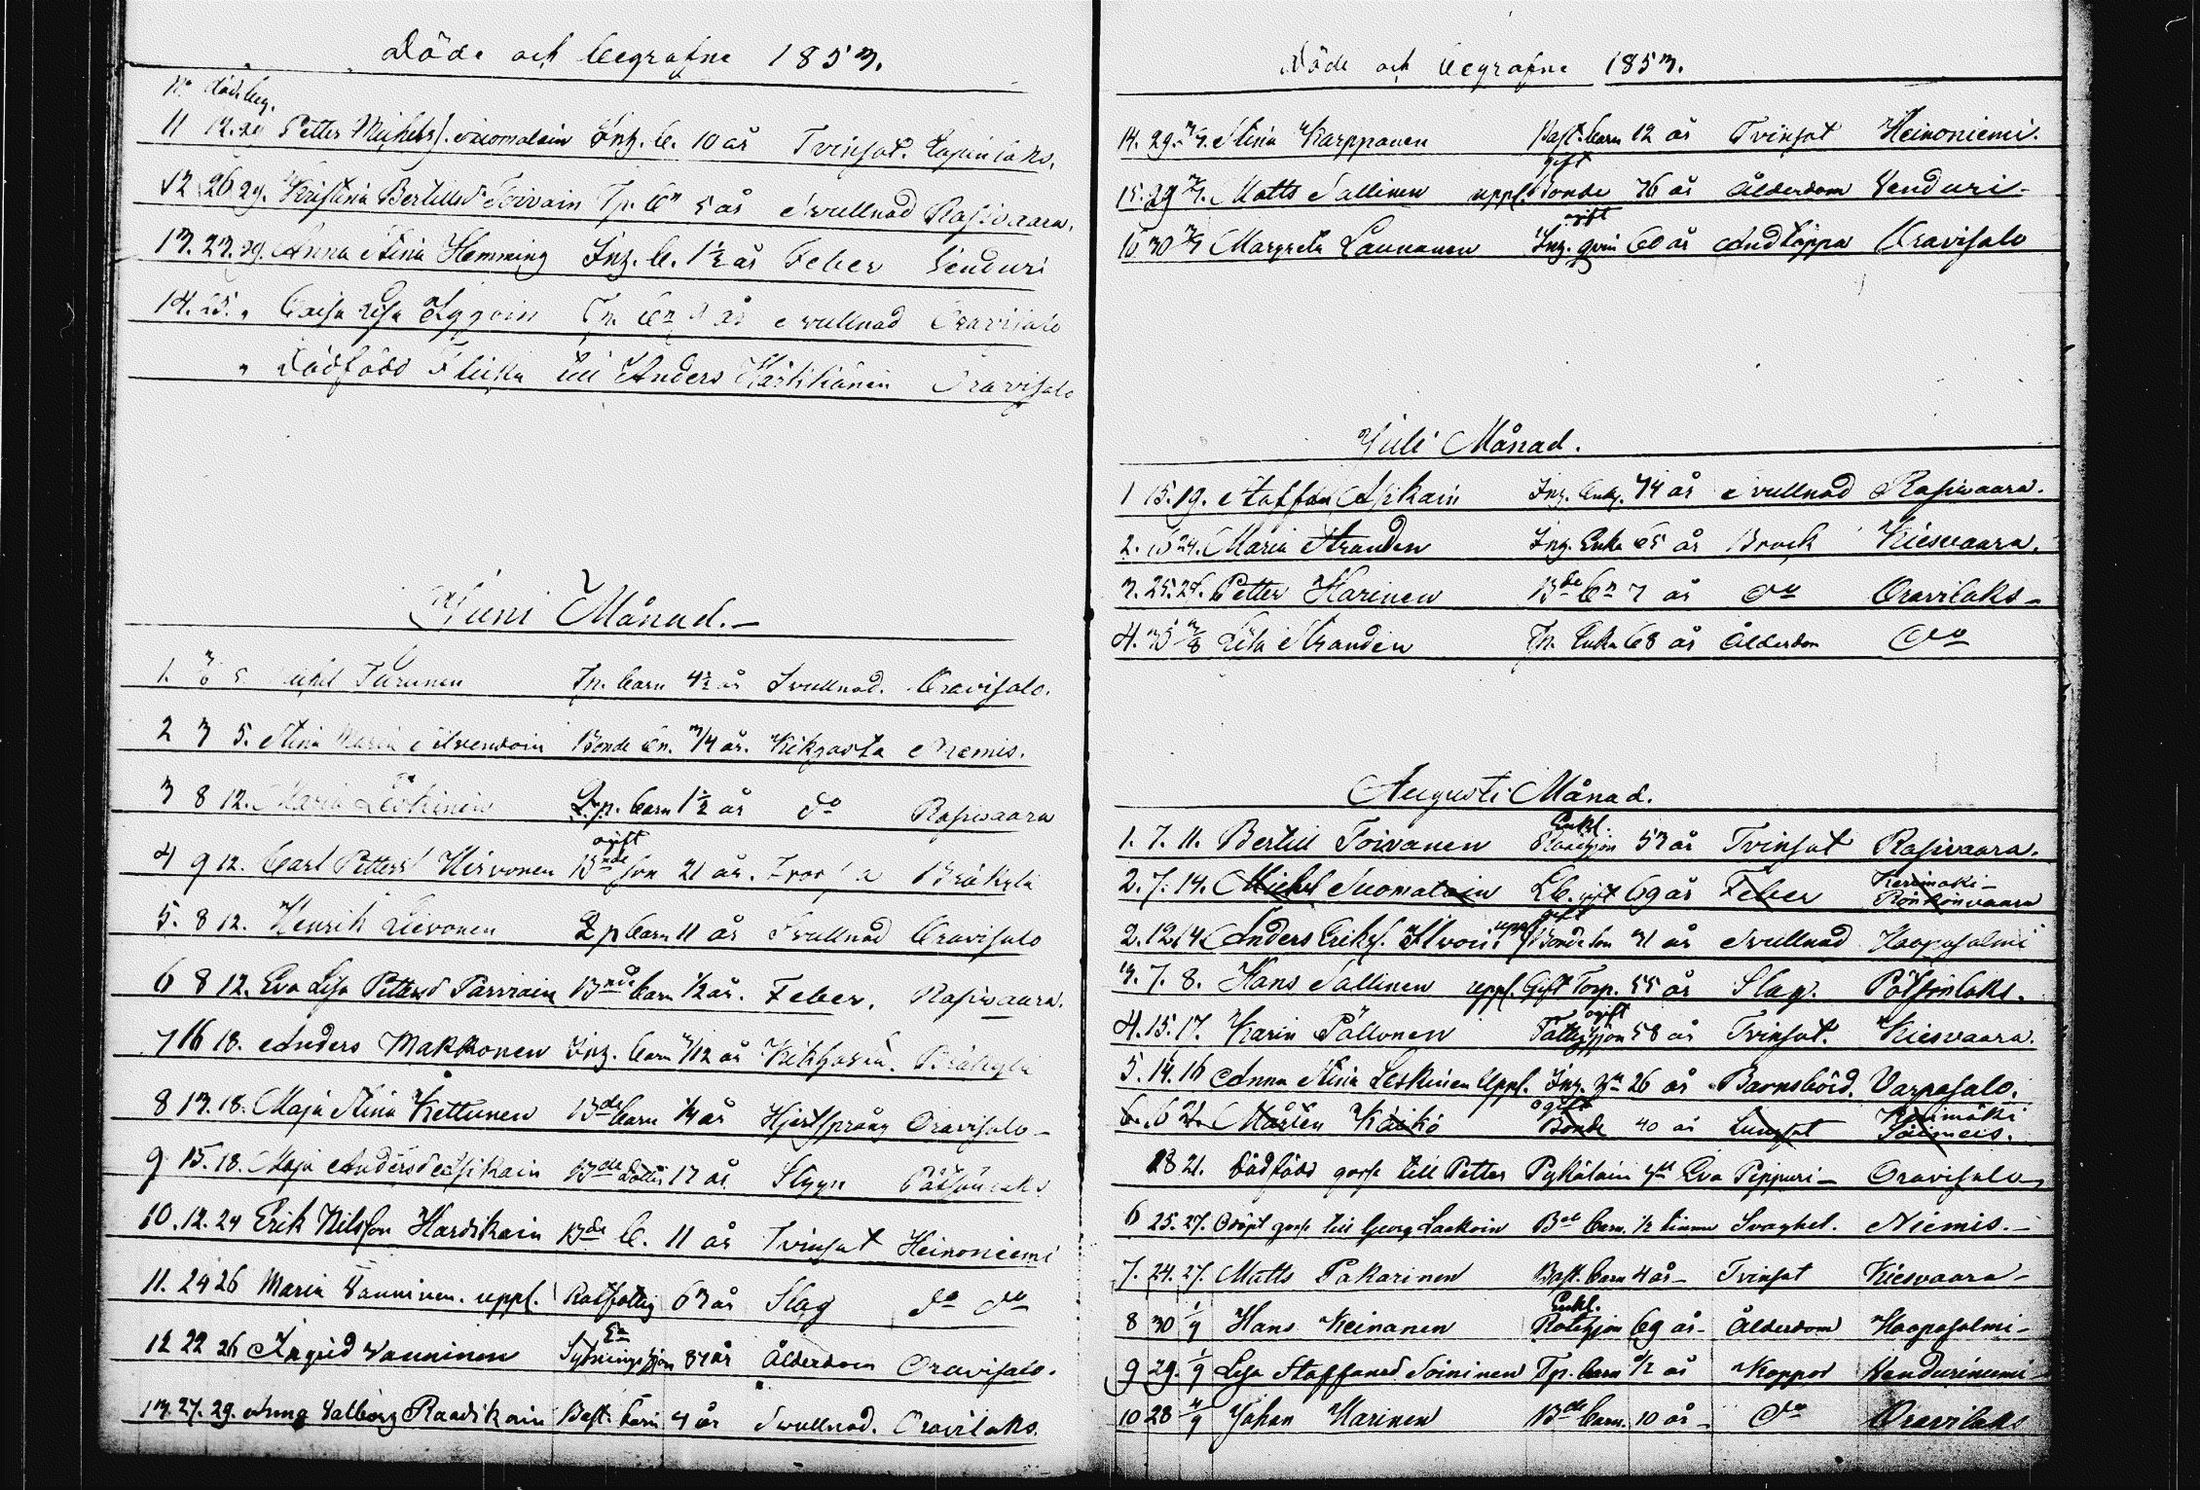 Döde och begrafne 1853.
No död. beg.
11 12. 29 Petter Michelss. Suomalain Inh. b. 10 år Tvinsot.
12 26 29. Kristina Bertilsd Toivain Tp. bn 5 år Svullnad Rasivaara.
13. 23. 29. Anna Stina Hemming Inh. b. 1 1/2 år Feber Venduri
14. 25. " Caisa Lisa Tp. bn år Svullnad Oravisalo
" Dödfödd Flicka till Anders Härkkönen Oravisalo
Juni Månad.
1. 3/6 5 Michel Turunen Tp. barn 4 1/2 år Svullnad. Oravisalo.
2 3 5. Stina Maria Silvendoin Bonde bn. 3/4 år. Kikhosta Niemis.
3 8 12. Maria Leskinen Lp. barn 1 1/2 år do Rasivaara
4 9 12. Carl Petterss Hirvonen ogift Bnde son 21 år. Bräkylä
5. 8 12. Henrik Lievonen Lp barn 11 år Svullnad Oravisalo
6 8 12. Eva Lisa Pettersd Parviain Bnde barn 1/2 år. Feber. Rasivaara.
7 16 18. Anders Makkonen Inh. barn 7/12 år Kikhosta. Bräkylä
8 13. 18. Maja Stina Kettunen Bde barn 1/4 år Hjertsprång Oravisalo
9 15. 18. Maja Andersd Asikain Bde dotter 17 år. Styng Pötsönlaks
10. 12. 24 Erik Nilsson Hardikain Bde b. 11 år Tvinsot Heinoniemi
11. 24 26 Maria Vanninen. uppl. Rotfattig 63 år Slag do do
12 22 26 Ingrid Vanninen En Sytningshjon 87 år Ålderdom Oravisalo.
13. 27. 29. Anna Valborg Raadikain Bast. barn 4 år Svullnad. Oravilaks.
Döde och begrafne 1853.
14. 29. 3/7. Stina Karppanen Bast. barn 12 år Tvinsot Heinoniemi.
15. 29 3/7. Matts Sallinen uppl. gift Bonde 76 år Ålderdom Venduri
16 30 3/7 Margreta Launonen ogift Inh. qvin 60 år Andtäppa Oravisalo
Juli Månad.
1 15. 19. Staffan Asikain Inh. Enkl. 74 år Svullnad Rasivaara.
2. 16 24. Maria Stranden Inh. Enka 65 år Bråck Kiesvaara.
3. 25. 27. Petter Harinen Bde bn 7 år do Oravilaks
4. Lisa Stranden Tp. Enka 68 år Ålderdom do
Augusti Månad.
1. 7. 11. Bertill Toivanen Enkl. Rotehjon 53 år Tvinsot Rasivaara.
2. 7. 14. Michel Suomalain Lb. gift 69 år Feber Kerimäki Rönkönvaara
2. 12. 14. Anders Eriks. Silvoin uppl gift Bonde son 31 år Svullnad Haapasalmi
3. 7. 8. Hans Sallinen uppl. Gift Torp. 55 år Slag. Pötsönlaks.
4. 15. 17. Karin Pällonen ogift Fattighjon 58 år Tvinsot. Kiesvaara.
5. 14. 16 Anna Stina Leskinen Uppl. Inh. qn 26 år Barnsbörd. Varpasalo.
6. 16 21. Mårten Käikö ogift Bonde 40 år Lungsot Kerimäki
18 21. Dödfödd gosse till Petter Pykäläin och Eva Pippuri Oravisalo
6 25. 27. Odöpt gosse till Georg Laakoin Bde barn. 1/2 timme Svaghet. Niemis.
7. 24. 27. Matts Pakarinen Bast. barn 4 år Tvinsot Kiesvaara
8 30 1/9 Hans Keinanen Enkl. Rotehjon 69 år Ålderdom Haapasalmi
9 29. 1/9 Lisa Staffansd Soininen Tp. barn 1/2 år Koppor Vendurinniemi
10 28 4/9 Johan Harinen Bde barn. 10 år do Oravilaks